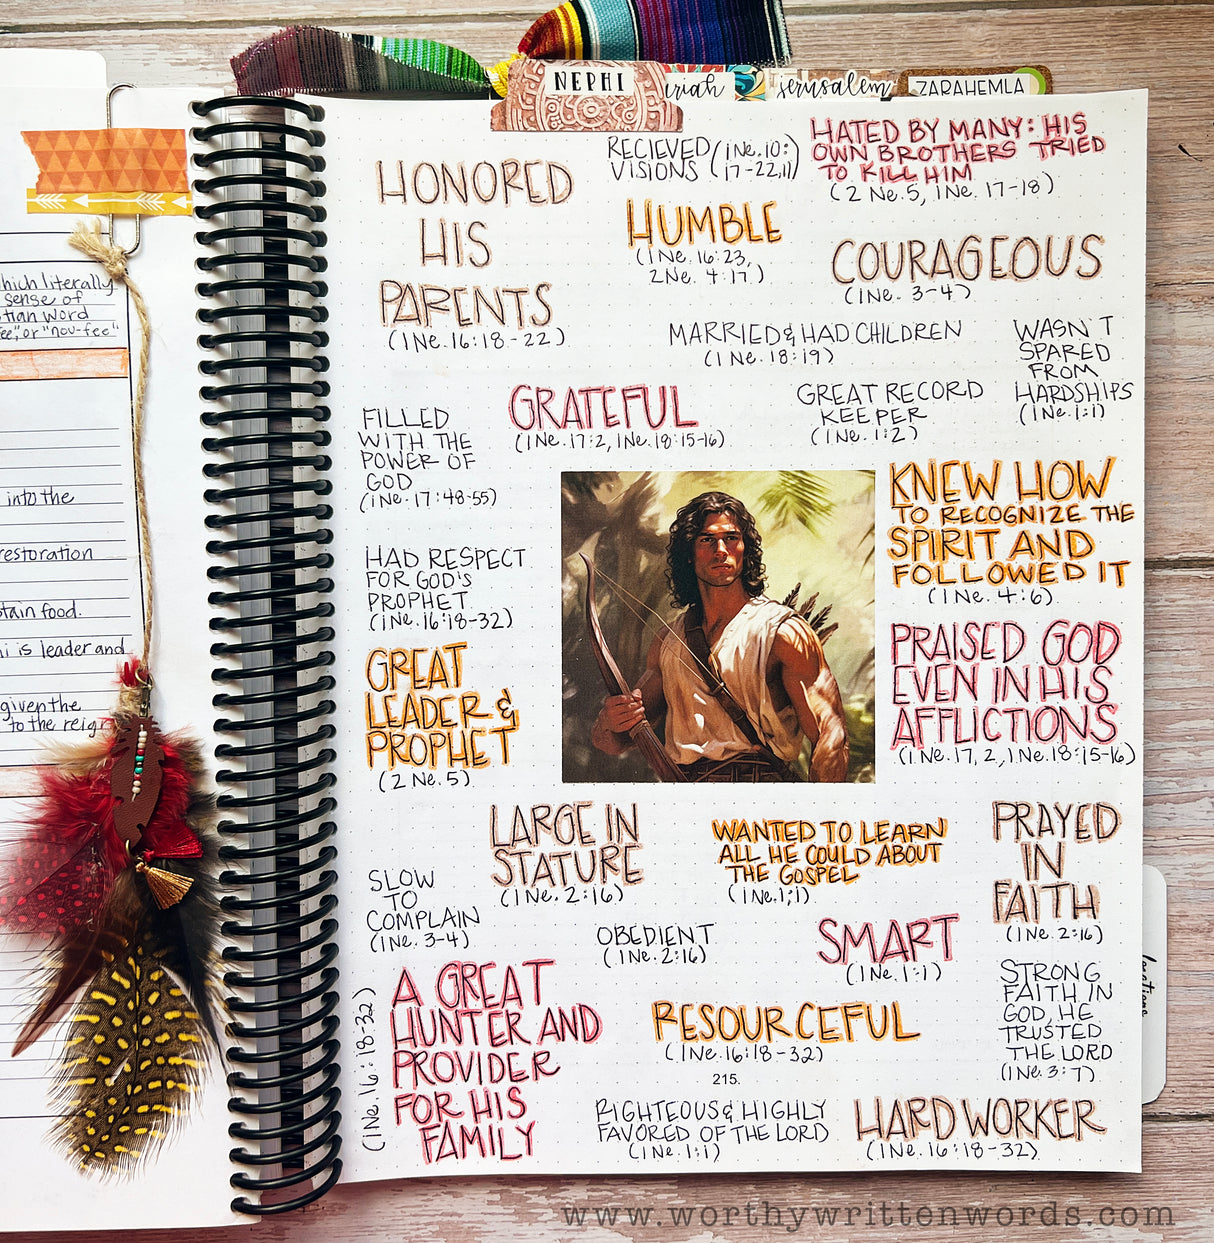 NEPHI
riah
jerusalem
ZARAHEMLA
which literally
sense of
tian word
fee", or "nou-fee"
into the
restoration
tain food.
hi is leader and
given the
to the reign
HONORED
HIS
PARENTS
(1Ne. 16:18-22)
RECIEVED
VISIONS
(1Ne. 10:
17-22, 11)
HATED BY MANY: HIS
OWN BROTHERS TRIED
TO KILL HIM
(2 Ne. 5, 1Ne. 17-18)
HUMBLE
(1Ne. 16:23,
2Ne. 4:17)
COURAGEOUS
(1Ne. 3-4)
MARRIED & HAD CHILDREN
(1Ne. 18:19)
WASN'T
SPARED
FROM
HARDSHIPS
(1Ne. 1:1)
FILLED
WITH THE
POWER OF
GOD
(1Ne. 17:48-55)
GRATEFUL
(1Ne. 17:2, 1Ne. 18:15-16)
GREAT RECORD
KEEPER
(1Ne. 1:2)
KNEW HOW
TO RECOGNIZE THE
SPIRIT AND
FOLLOWED IT
(1Ne. 4:6)
HAD RESPECT
FOR GOD'S
PROPHET
(1Ne. 16:18-32)
GREAT
LEADER &
PROPHET
(2 Ne. 5)
PRAISED GOD
EVEN IN HIS
AFFLICTIONS
(1Ne. 17, 2, 1Ne. 18:15-16)
LARGE IN
STATURE
(1Ne. 2:16)
WANTED TO LEARN
ALL HE COULD ABOUT
THE GOSPEL
(1Ne. 1;1)
PRAYED
IN
FAITH
(1Ne. 2:16)
SLOW
TO
COMPLAIN
(1Ne. 3-4)
OBEDIENT
(1Ne. 2:16)
SMART
(1Ne. 1:1)
STRONG
FAITH IN
GOD, HE
TRUSTED
THE LORD
(1Ne. 3:7)
A GREAT
HUNTER AND
PROVIDER
FOR HIS
FAMILY
(1Ne. 16:18-32)
RESOURCEFUL
(1Ne. 16:18-32)
215.
RIGHTEOUS & HIGHLY
FAVORED OF THE LORD
(1Ne. 1:1)
HARD WORKER
(1Ne. 16:18-32)
locations
www.worthywrittenwords.com